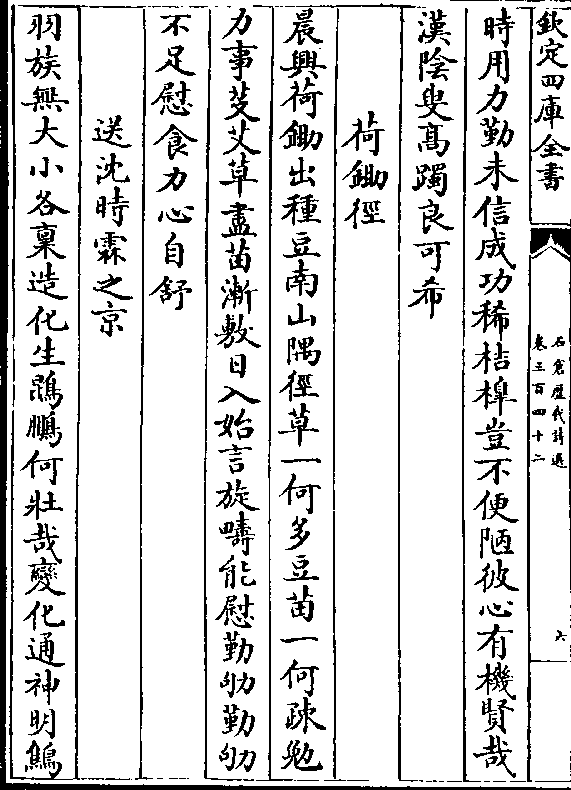 欽定四庫全書
石倉歷代詩選
卷三百四十二
六
時用力勤未信成功稀桔橰豈不便陋彼心有機賢哉
漢陰叟髙躅良可希
荷鋤徑
晨興荷鋤出種豆南山隅徑草一何多豆苗一何疎勉
力事芟艾草盡苗漸敷日入始言旋疇能慰勤劬勤劬
不足慰食力心自舒
送沈時霖之京
羽族無大小各稟造化生鵾鵬何壯哉變化通神明鷦